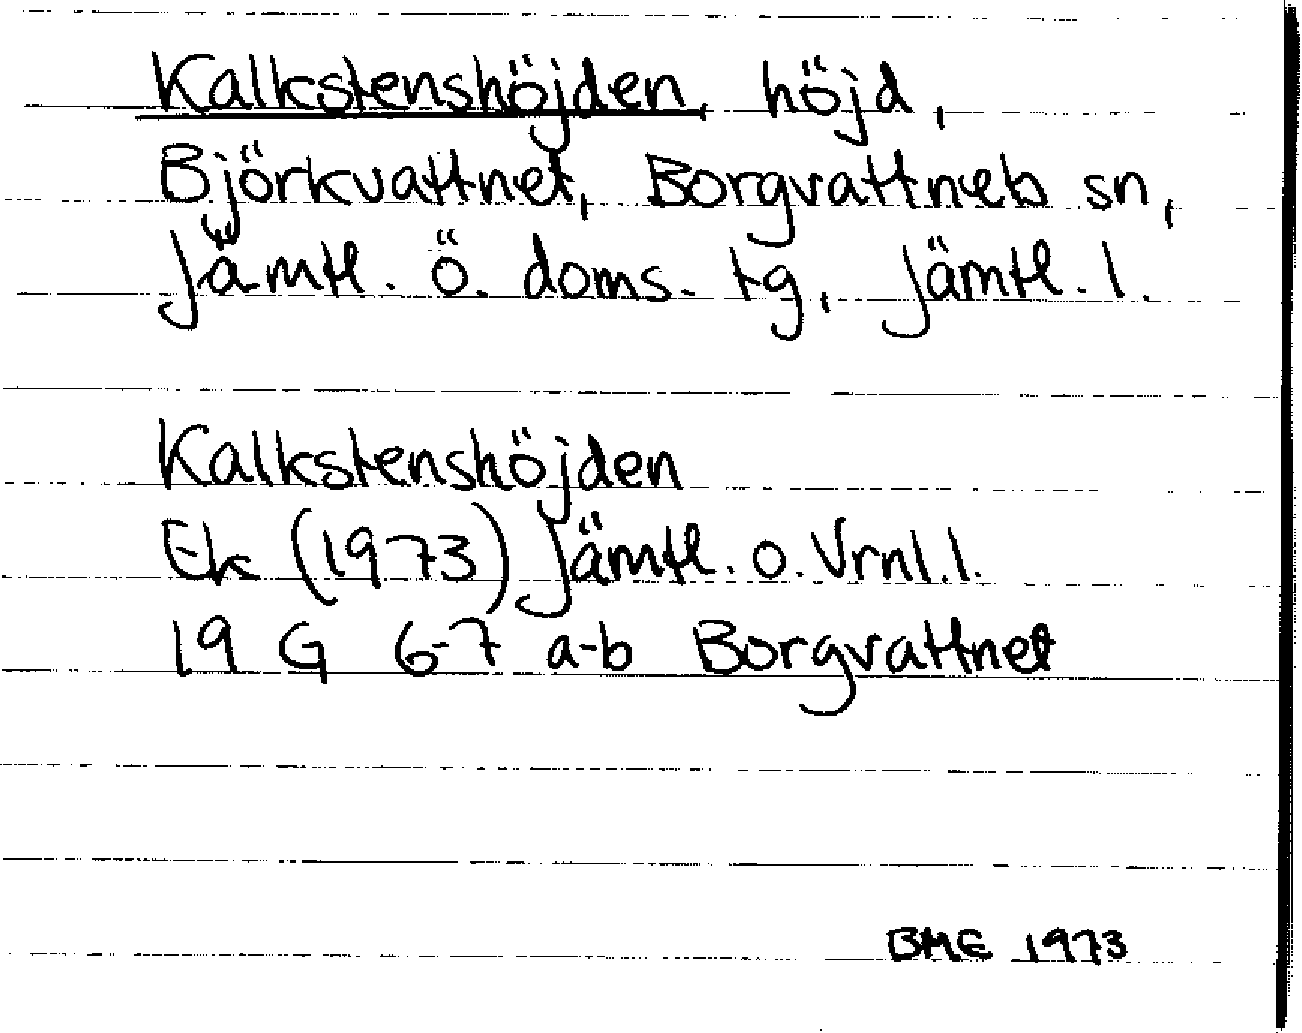 Kalkstenshöjden, höjd,
Björkvattnet, Borgvattnets sn,
Jämtl. ö. doms. tg, Jämtl. l.
Kalkstenshöjden
Ek (1973) Jämtl. o. Vrnl. l.
19 G 6-7 a-b Borgvattnet
BME 1973